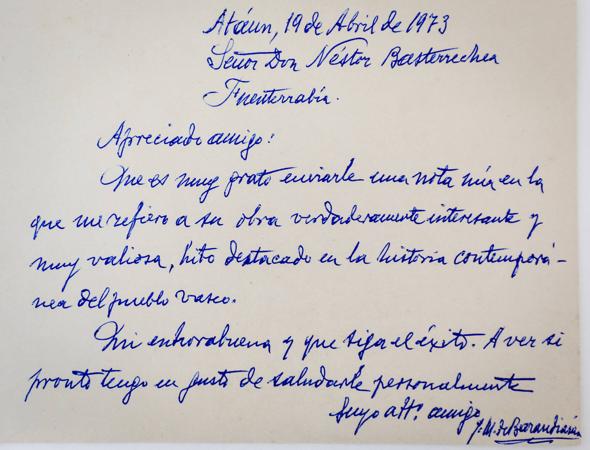 Atáun, 19 de Abril de 1973
Señor Don Néstor Basterrechea
Fuenterrabía.
Apreciado amigo:
Me es muy grato enviarle una nota mía en la
que me refiero a su obra verdaderamente interesante y
muy valiosa, hito destacado en la historia contemporá-
nea del pueblo vasco.
Mi enhorabuena y que siga el éxito. A ver si
pronto tengo en gusto de saludarle personalmente
Suyo aff. amigo
J. M. de Barandiarán